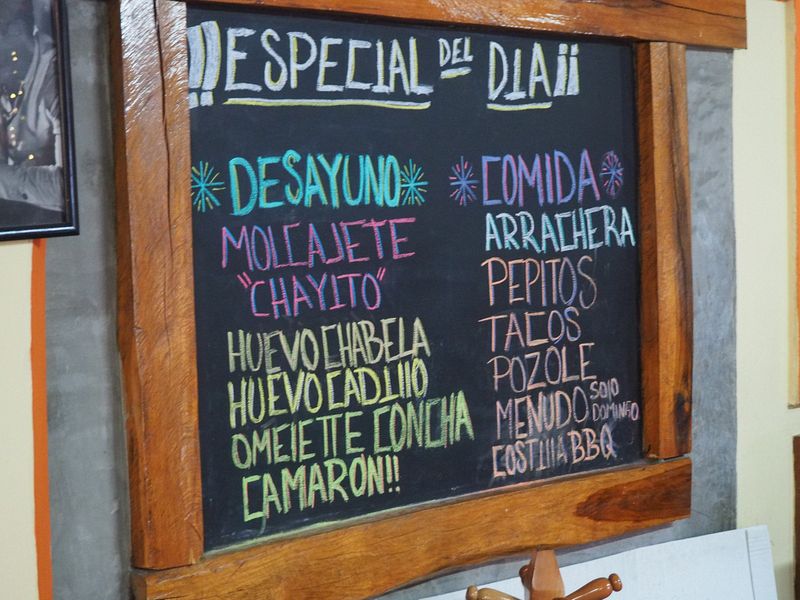 !!ESPECIAL DEL DIA¡¡
DESAYUNO
MOLCAJETE
"CHAYITO"
HUEVO CHABELA
HUEVO CADILLO
OMELETTE CONCHA
CAMARON!!
COMIDA
ARRACHERA
PEPITOS
TACOS
POZOLE
MENUDO SOLO DOMINGO
COSTILLA BBQ